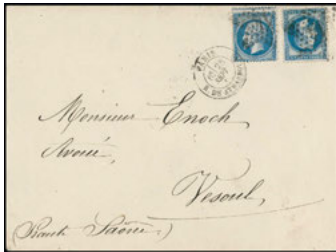 PARIS
Monsieur Enoch
Avoué,
Vesoul,
(Haute Saône.)